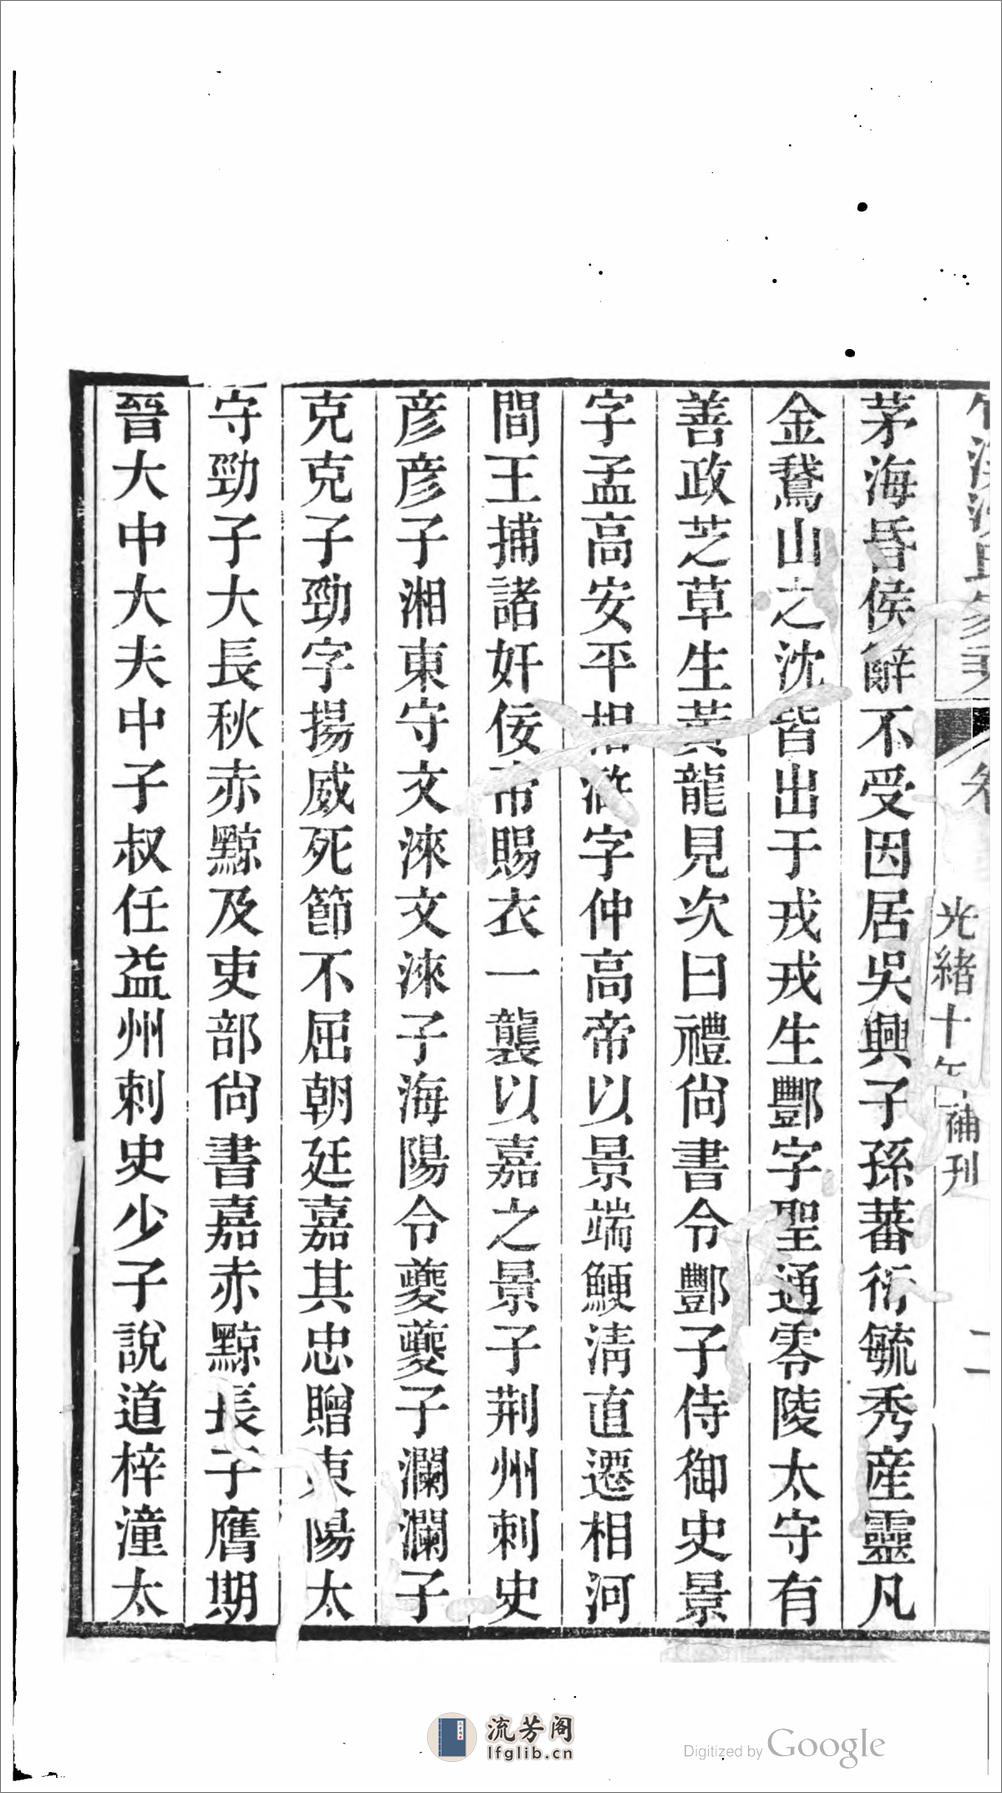 竹溪沈氏家乘 卷
光緒十年補刊
二
茅海昏侯辭不受因居吳興子孫蕃衍毓秀産靈凡
金鵞山之沈皆出于戎戎生酆字聖通零陵太守有
善政芝草生黃龍見次曰禮尙書令酆子侍御史景
字孟高安平相滸字仲高帝以景端鯁淸直遷相河
間王捕諸奸佞帝賜衣一襲以嘉之景子荆州刺史
彦彦子湘東守文淶文淶子海陽令夔夔子瀾瀾子
克克子勁字揚威死節不屈朝廷嘉其忠贈東陽太
守勁子大長秋赤黥及吏部尙書嘉赤黥長子膺期
晉大中大夫中子叔任益州刺史少子說道梓潼太
流芳阁
lfglib.cn
Digitized by Google